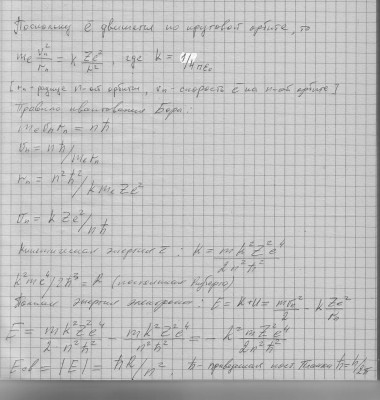 Поскольку e̅ движется по круговой орбите, то
mₑ vₙ²/rₙ = k Ze²/r², где k = 1/4πε₀
[rₙ - радиус n-ой орбиты, vₙ - скорость e̅ на n-ой орбите]
Правило квантования Бора:
mₑvₙrₙ = nħ
vₙ = nħ/mₑrₙ
rₙ = n²ħ²/kmₑZe²
vₙ = kZe²/nħ
Кинетическая энергия e̅: K = mk²Z²e⁴/2n²ħ²
k²me⁴/2ħ³ = R (постоянная Ридберга)
Полная энергия электрона: E = K+U = mvₙ²/2 - k Ze²/rₙ
E = m k²Z²e⁴/2 n²ħ² - mk²Z²e⁴/n²ħ² = - k²mZ²e⁴/2n²ħ²
Eсв = |E| = ħR/n², ħ - приведённая пост. Планка ħ=h/2π